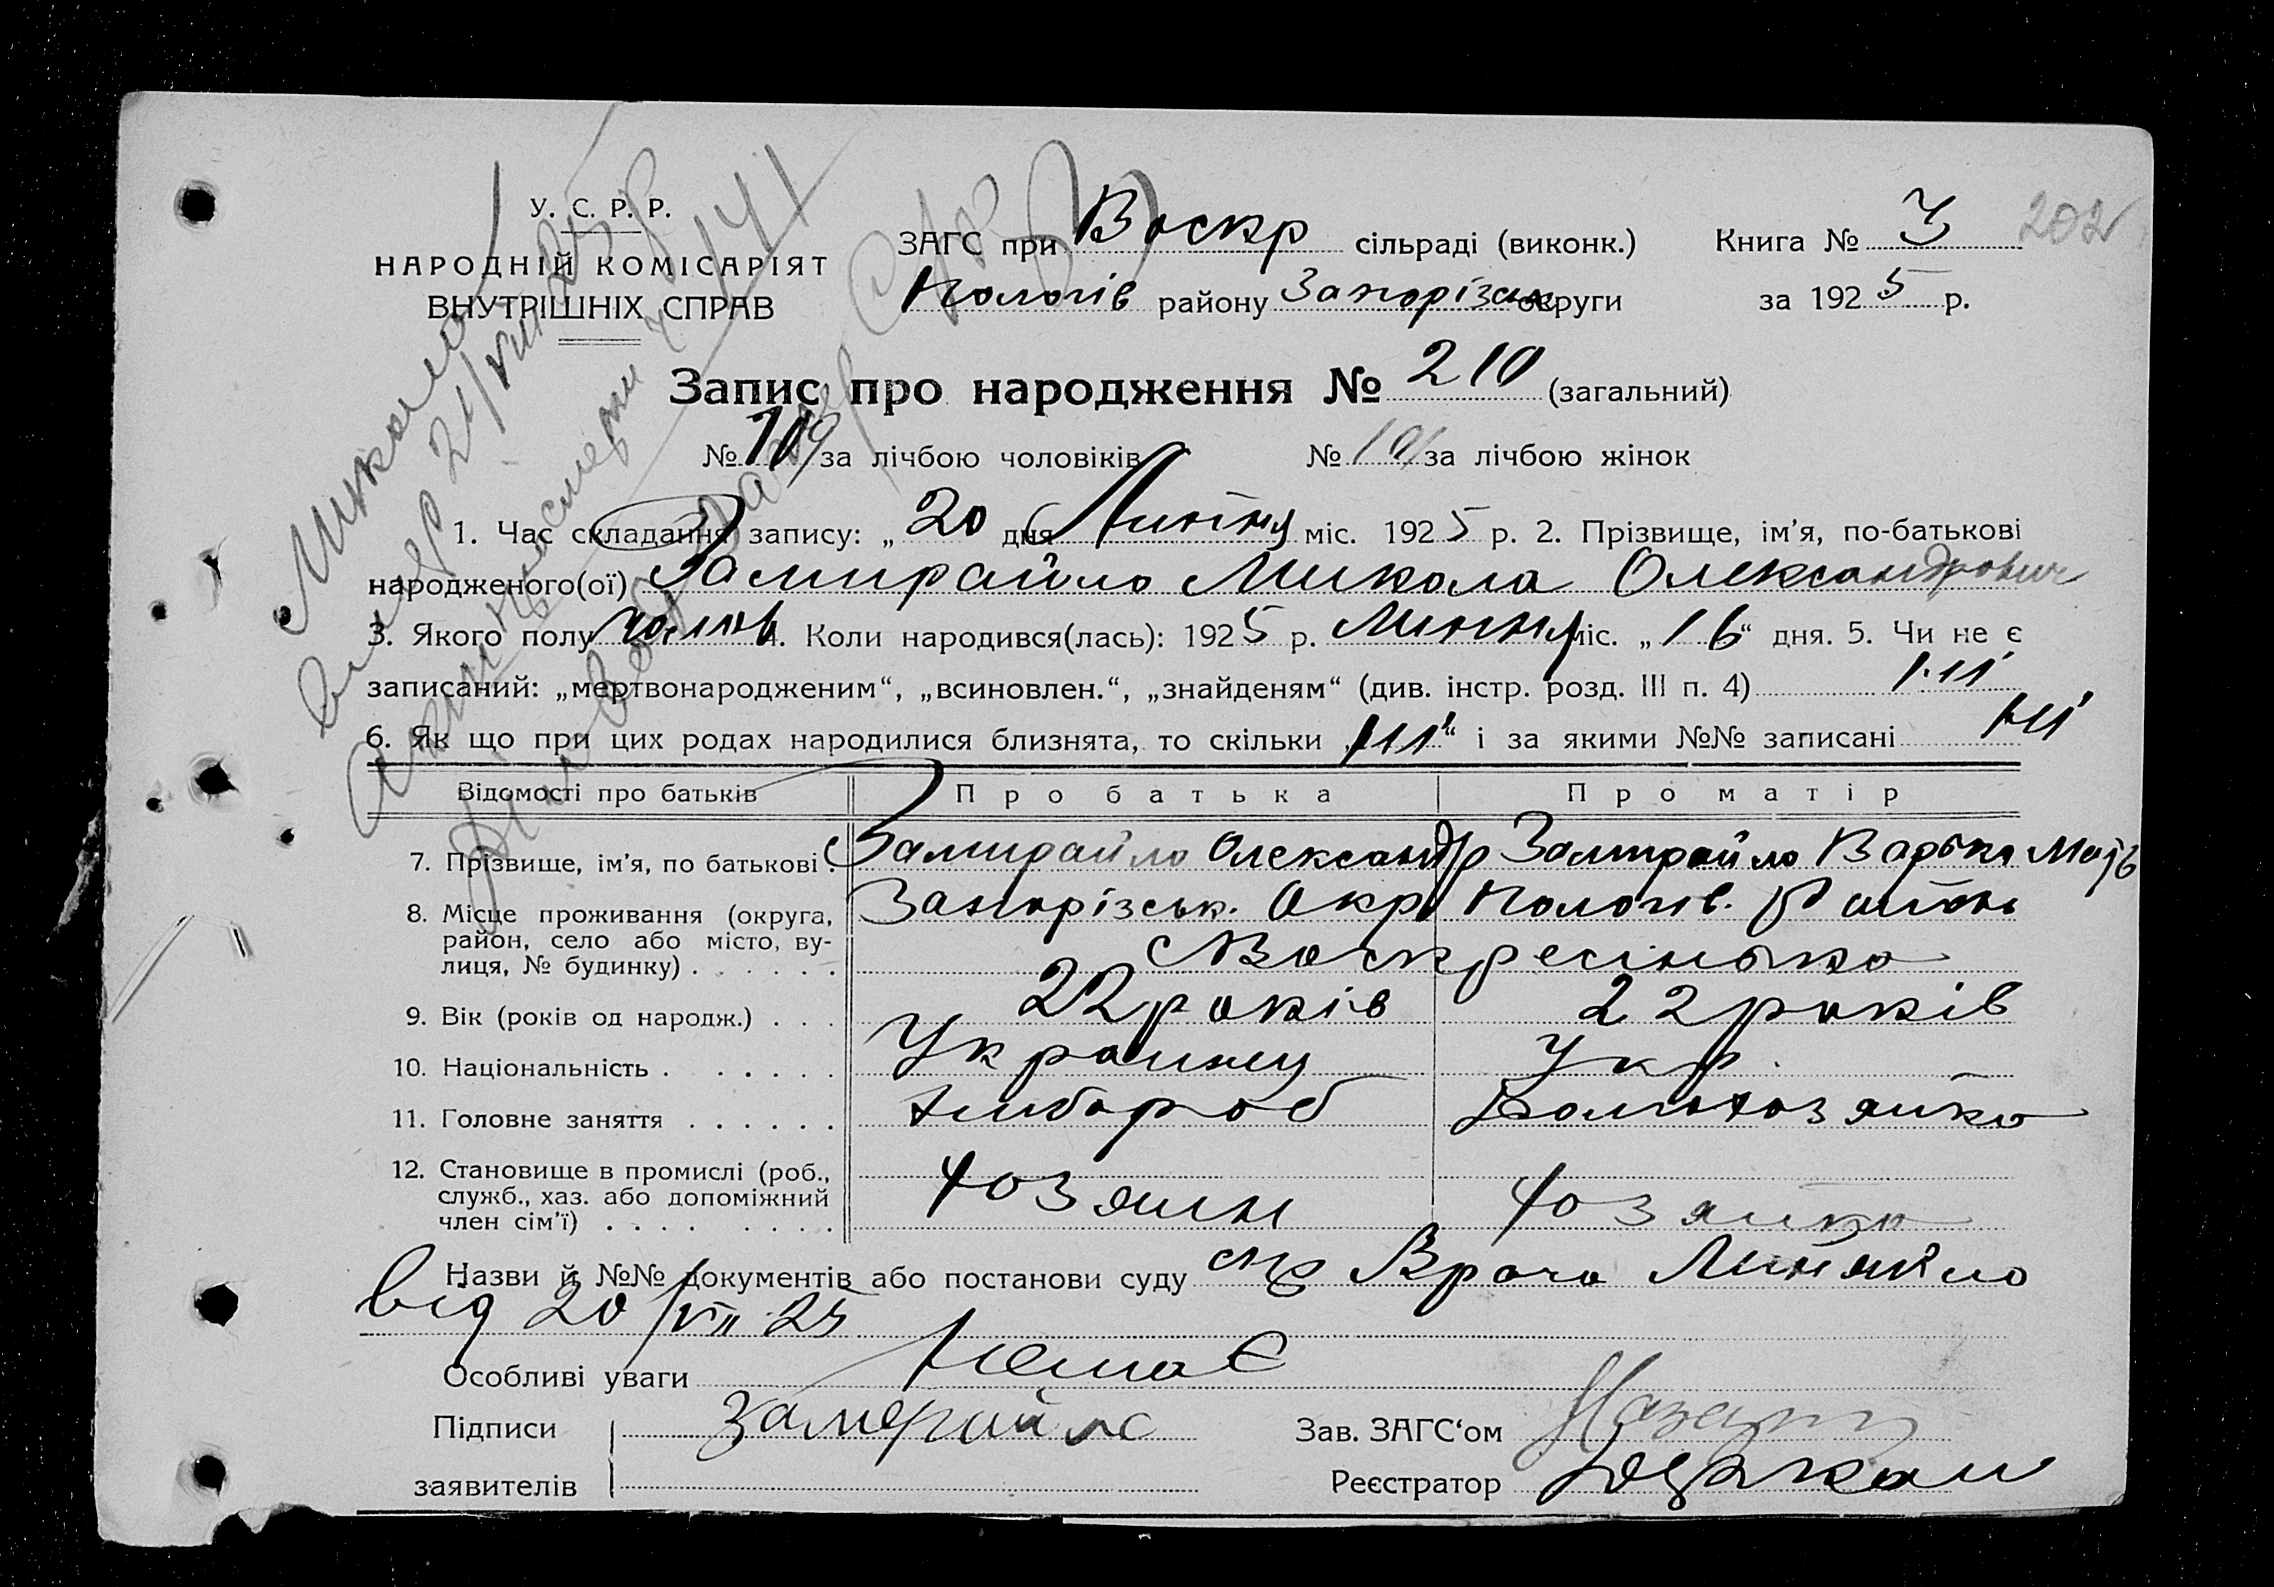 У. С. Р. Р.
НАРОДНІЙ КОМІСАРІЯТ
ВНУТРІШНІХ СПРАВ
ЗАГС при Воскр сільраді (виконк.)
Пологів району Запорізьк округи
Книга № 3
202
за 1925 р.
Запис про народження № 210 (загальний)
№ 109 за лічбою чоловіків № 101 за лічбою жінок
1. Час складання запису: „ 20 дня Липня міс. 1925 р. 2. Прізвище, ім'я, по-батькові
народженого(ої) Замирайло Микола Олександрович
3. Якого полу чолов 4. Коли народився(лась): 1925 р. Липня міс. „16“ дня. 5. Чи не є
записаний: „мертвонародженим“, „всиновлен.“, „знайденям“ (див. інстр. розд. III п. 4) ні
6. Як що при цих родах народилися близнята, то скільки „ні“ і за якими №№ записані ні
Відомості про батьків Про батька Про матір
7. Прізвище, ім'я, по батькові . Замирайло Олександр Замирайло Варька
8. Місце проживання (округа, район, село або місто, вулиця, № будинку) . . . . . . Запорізськ. Окр Пологів. Район
Воскресінька
9. Вік (років од народж.) . . . 22 років 22 років
10. Національність . . . . . . Украинец Укр.
11. Головне заняття . . . . . . Хлибороб Домохозяйка
12. Становище в промислі (роб., служб., хаз. або допоміжний член сім'ї) . . . . . . . . Хозяин Хозяйка
Назви й №№ документів або постанови суду Врача
від 20/VII 25
Особливі уваги Немає
Підписи Замерайло Зав. ЗАГС'ом
заявителів Реєстратор
Микола
вмер 21/VIII 25 р
смерти № 141